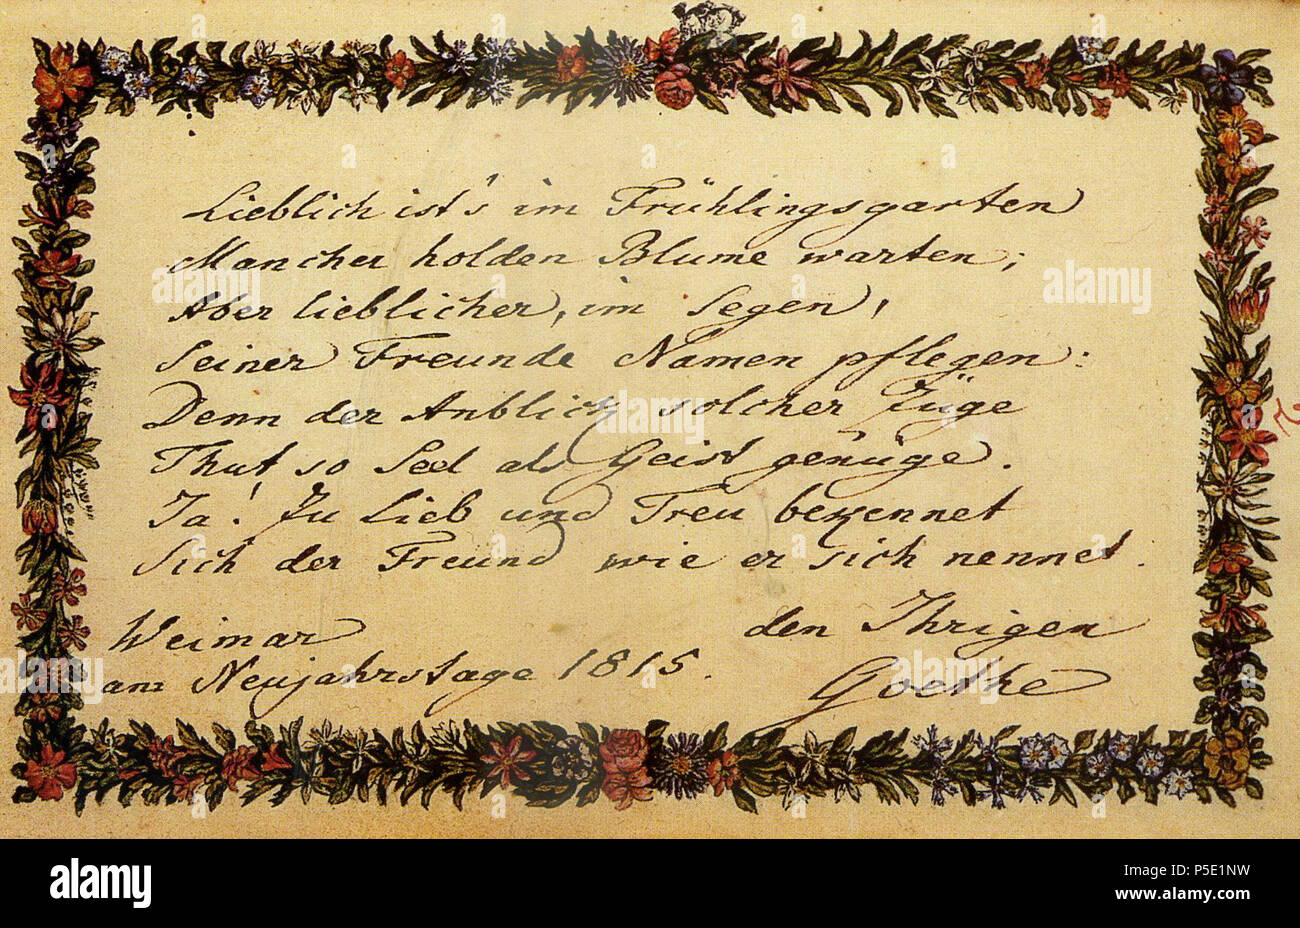 Lieblich ist's im Frühlingsgarten
Mancher holden Blume warten;
Aber lieblicher, im Segen,
Seiner Freunde Namen pflegen:
Denn der Anblick solcher Züge
Thut so Seel als Geist genüge.
Ja! Zu Lieb und Treu bekennet
Sich der Freund wie er sich nennet.
den Ihrigen
Weimar
Goethe
am Neujahrstage 1815.
alamy
alamy
Image ID: P5E1NW
www.alamy.com